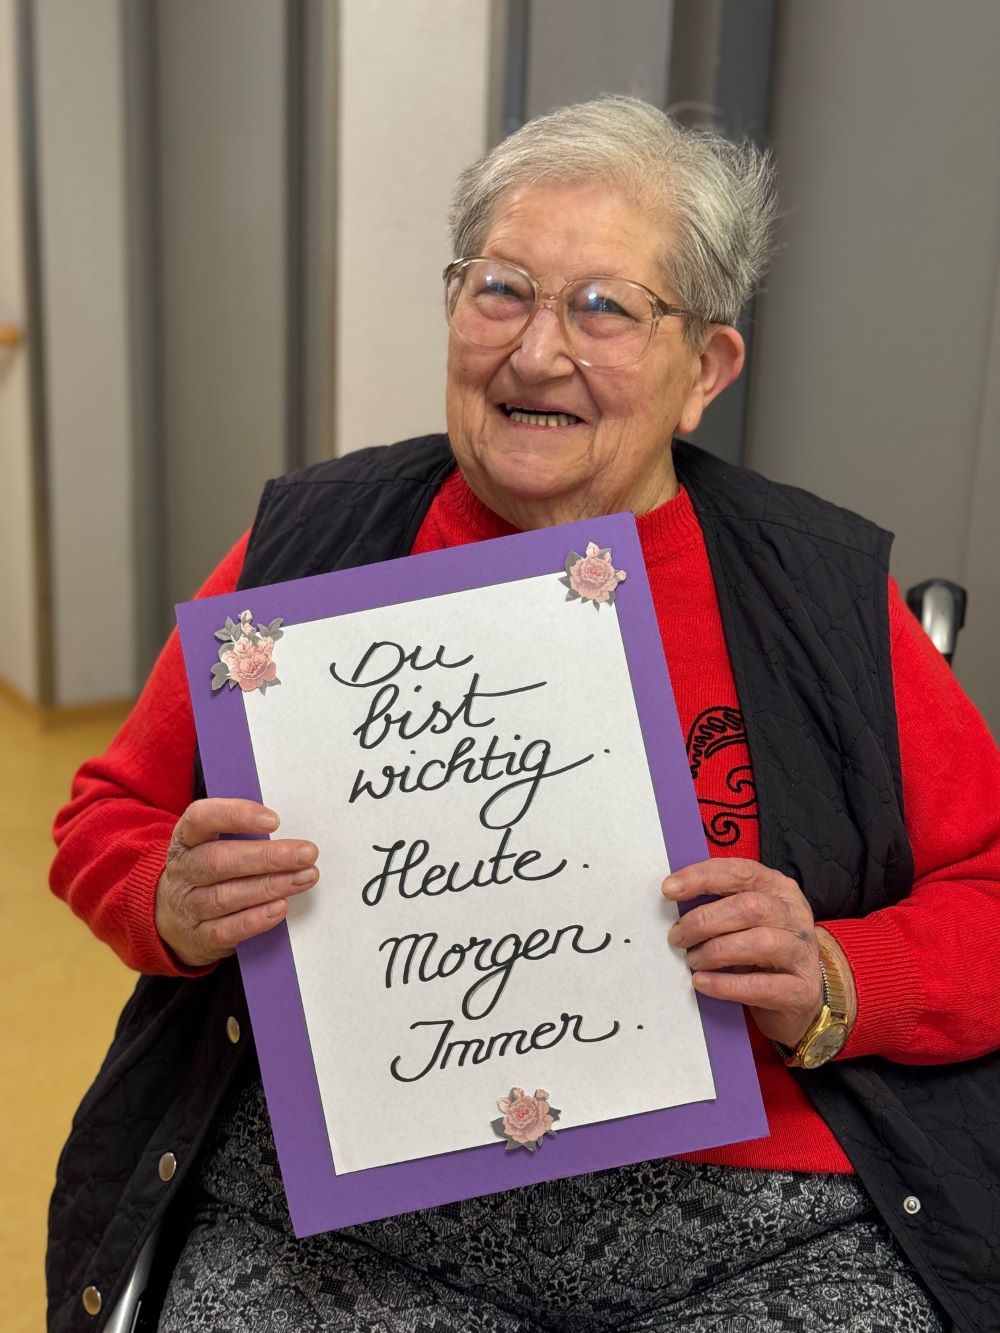 Du
bist
wichtig.
Heute.
Morgen.
Immer.